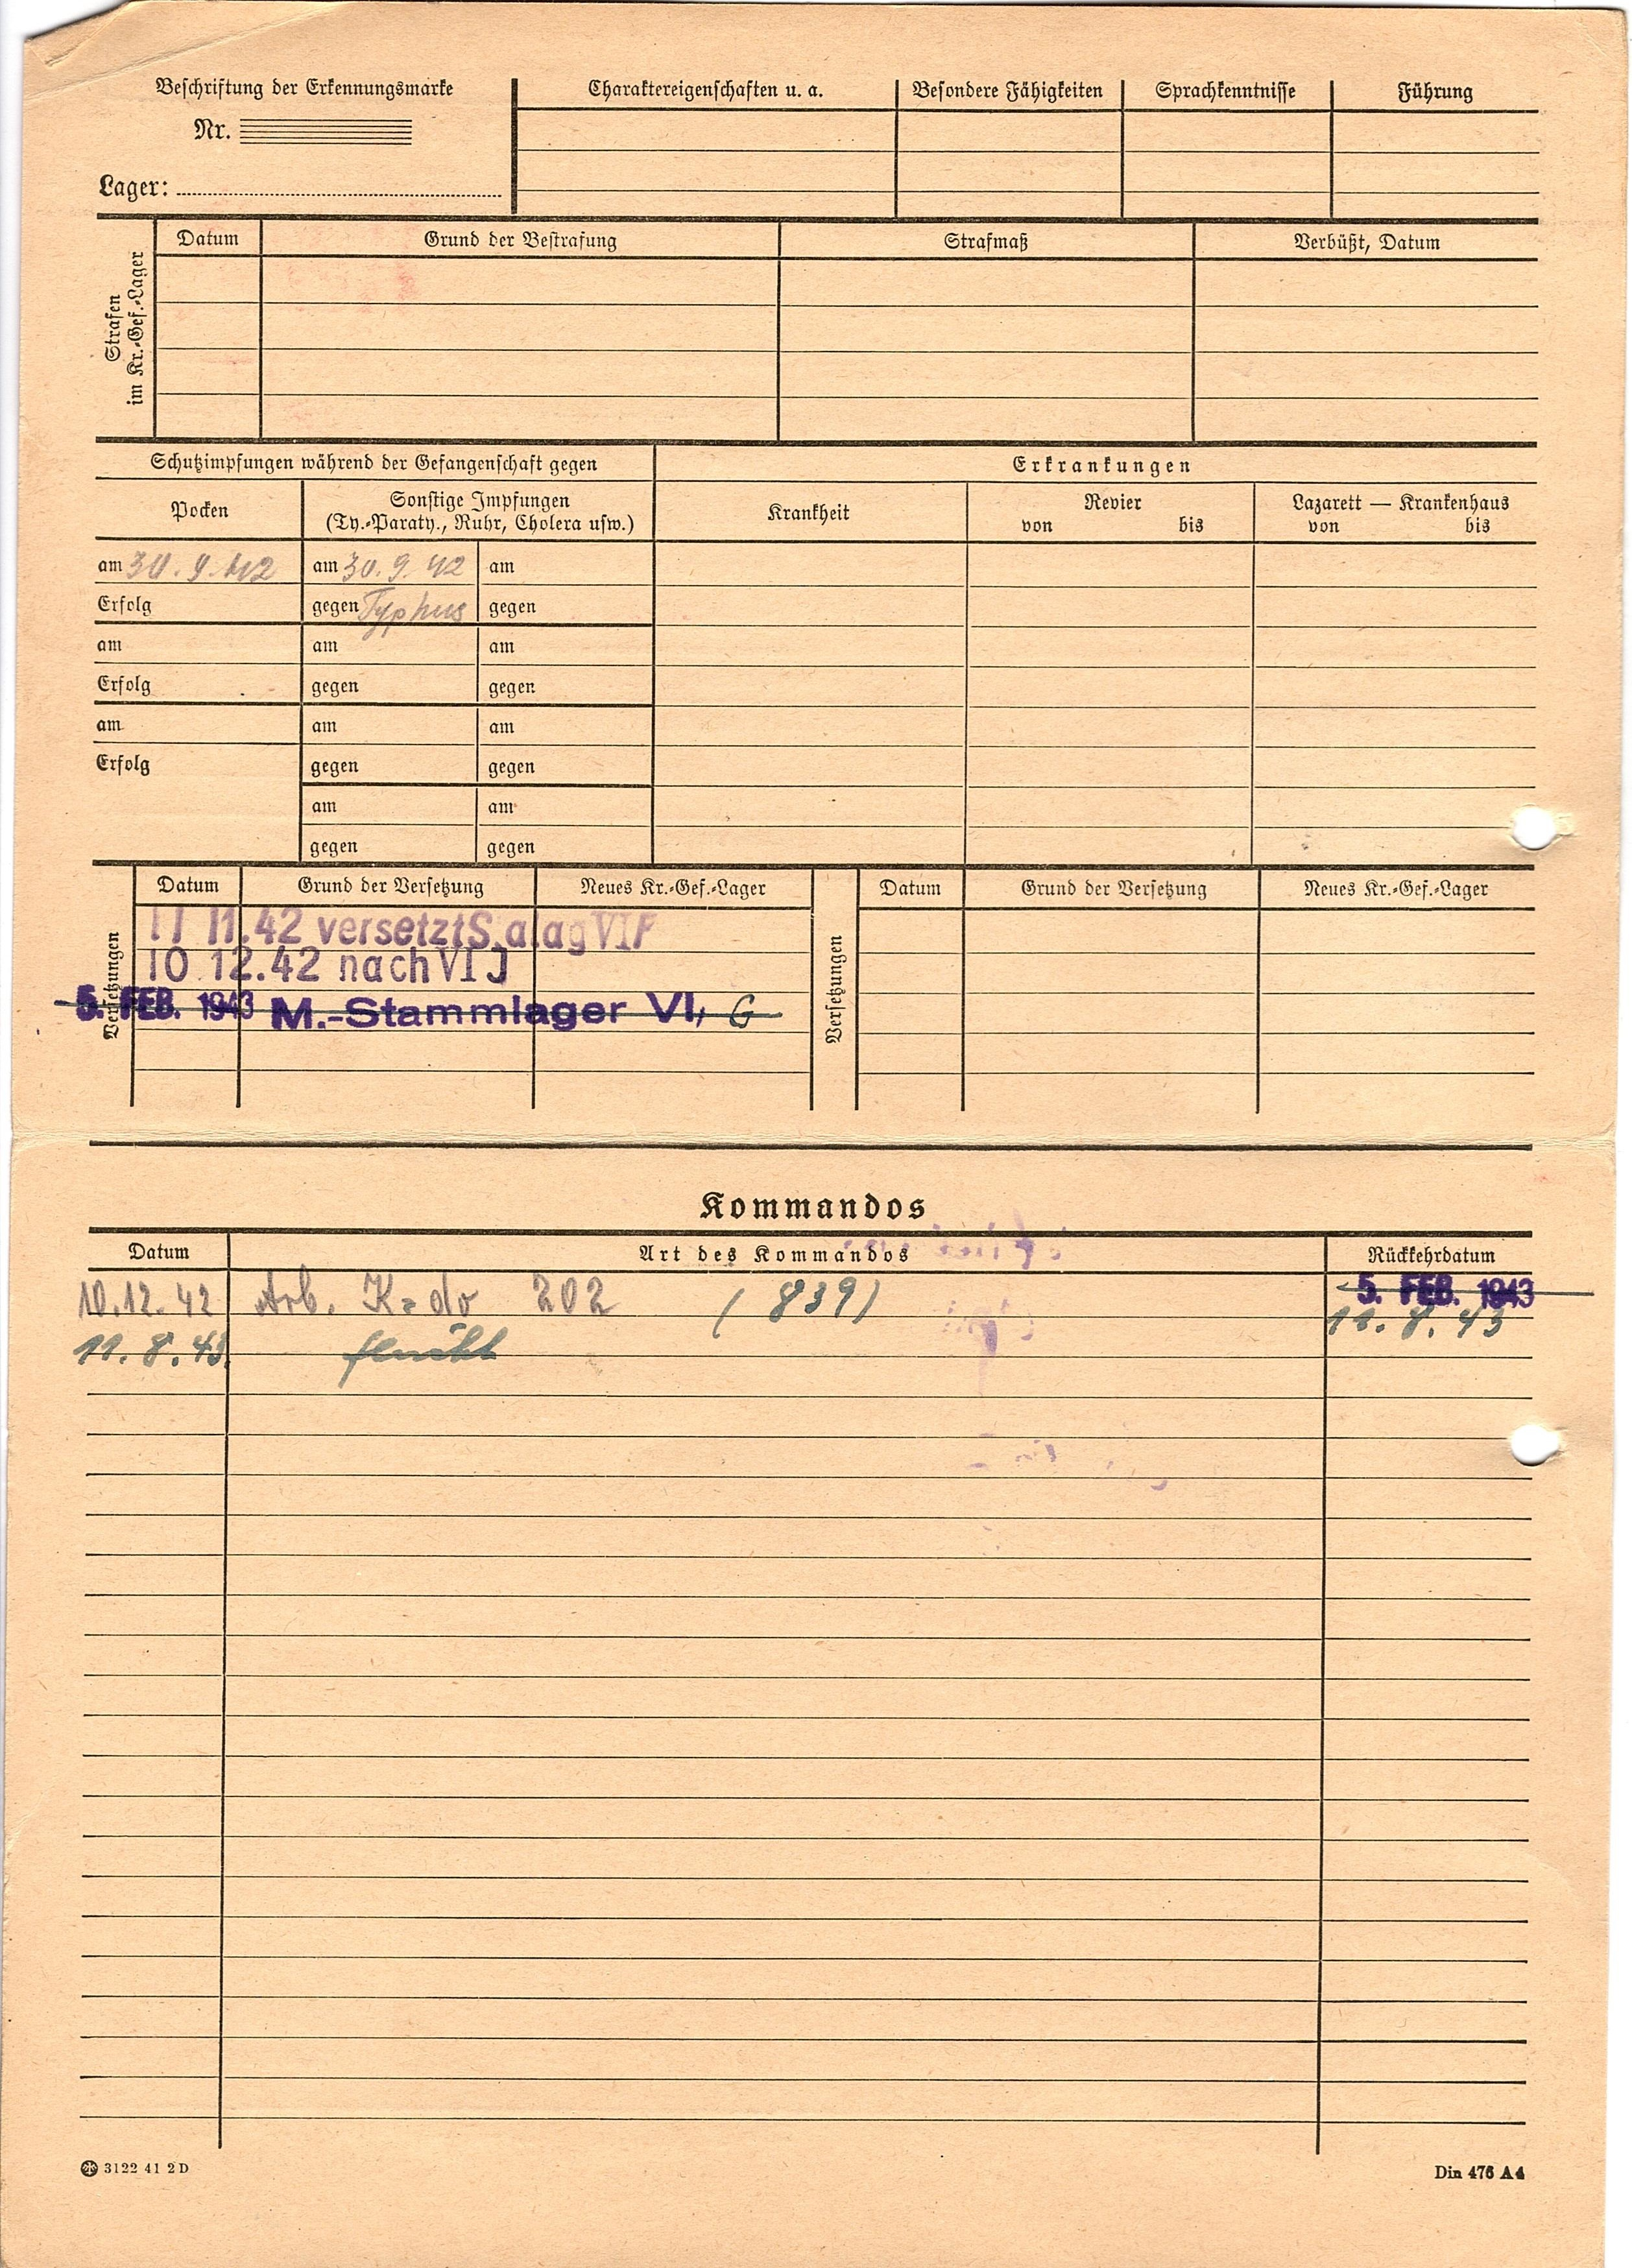 Beschriftung der Erkennungsmarke
Nr.
Lager:
Charaktereigenschaften u. a. Besondere Fähigkeiten Sprachkenntnisse Führung
Strafen
im Kr.-Gef.-Lager
Datum Grund der Bestrafung Strafmaß Verbüßt, Datum
Schutzimpfungen während der Gefangenschaft gegen Erkrankungen
Pocken Sonstige Impfungen Krankheit Revier Lazarett — Krankenhaus
(Ty.-Paraty., Ruhr, Cholera usw.) von bis von bis
am 30.9.42 am 30.9.42 am
Erfolg gegen Typhus gegen
am am am
Erfolg gegen gegen
am am am
Erfolg gegen gegen
am am
gegen gegen
Versetzungen
Datum Grund der Versetzung Neues Kr.-Gef.-Lager
11 11.42 versetzt S.alag VI F
10 12.42 nach VI J
5. FEB. 1943 M.-Stammlager VI, G
Versetzungen
Datum Grund der Versetzung Neues Kr.-Gef.-Lager
Kommandos
Datum Art des Kommandos Rückkehrdatum
10.12.42 Arb. K=do 202 (839) 5. FEB. 1943
11.8.43
11.8.43
3122 41 2 D
Din 476 A4